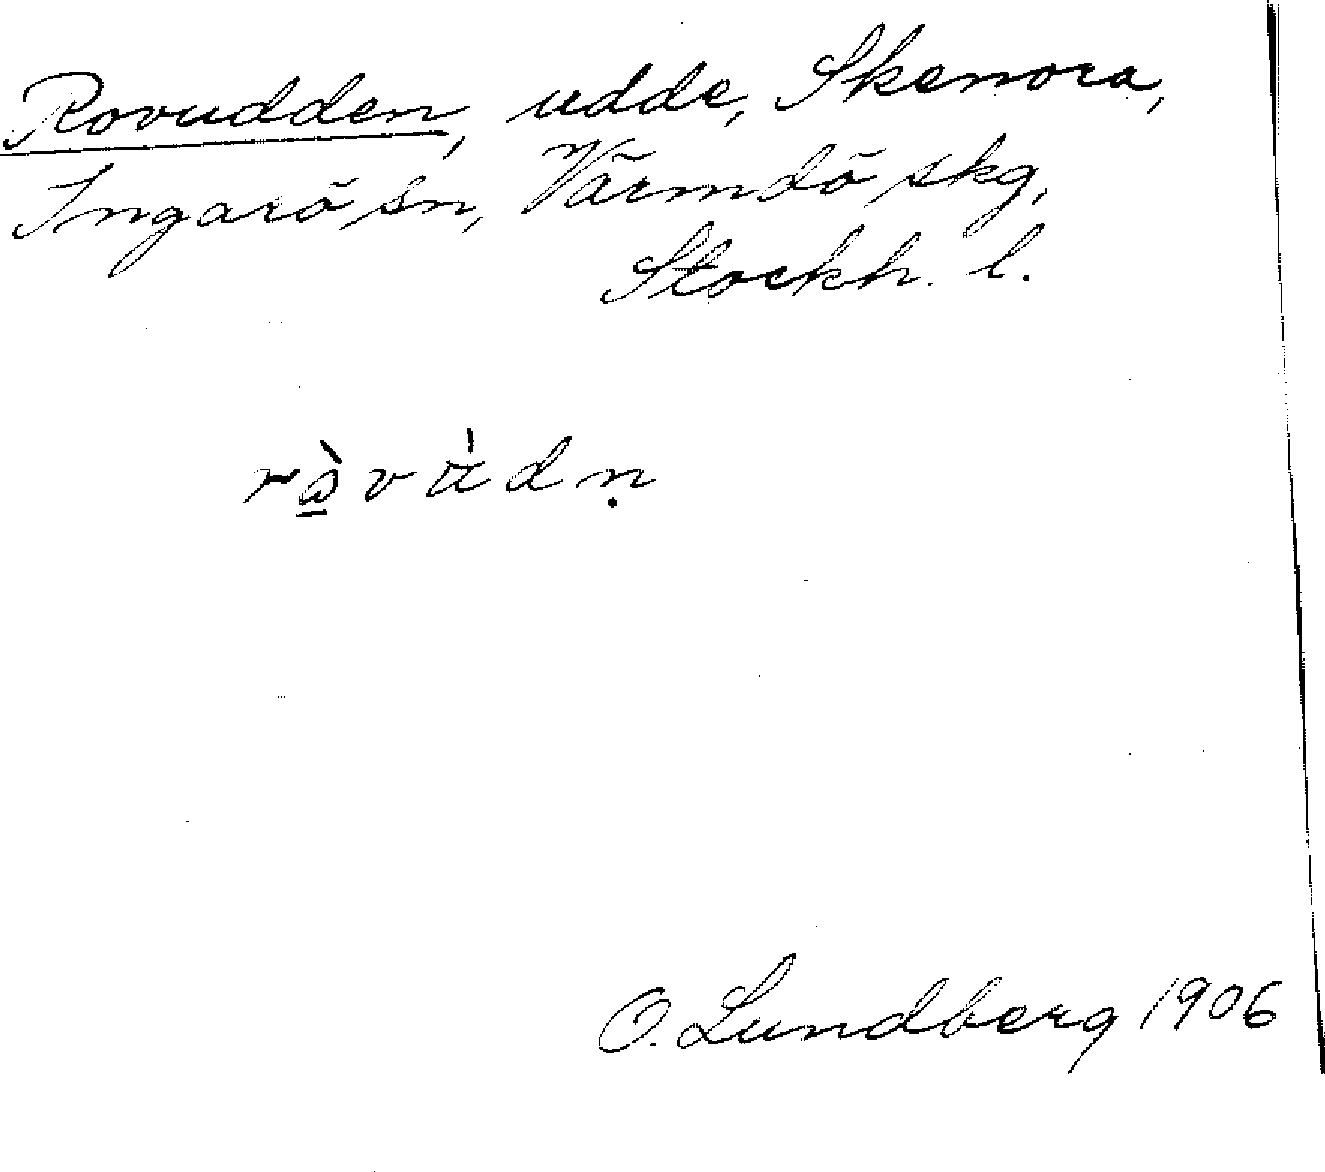 Rovudden, udde, Skenora,
Ingarö sn, Värmdö skg,
Stockh. l.
O. Lundberg 1906